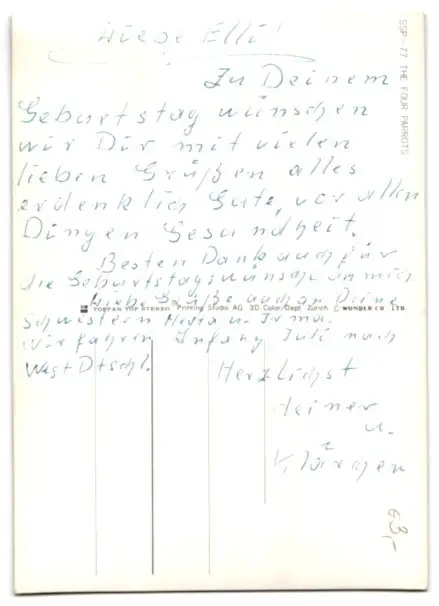 Liebe Elli!
Zu Deinem
Geburtstag wünschen
wir Dir mit vielen
lieben Grüßen alles
erdenklich Gute, vor allen
Dingen Gesundheit.
Besten Dank auch für
die Geburtstagswünsche an mich
Liebe Grüße auch an Deine
TOPPAN TOP STEREO Printing Studio AG 3D Color Dept Zürich © WONDER CO. LTD.
Schwestern Herta u. Irma.
Wir fahren Anfang Juli nach
West Dtschl.
Herzlichst
Heiner
u.
Klärchen
63,-
SSP-77 THE FOUR PARROTS